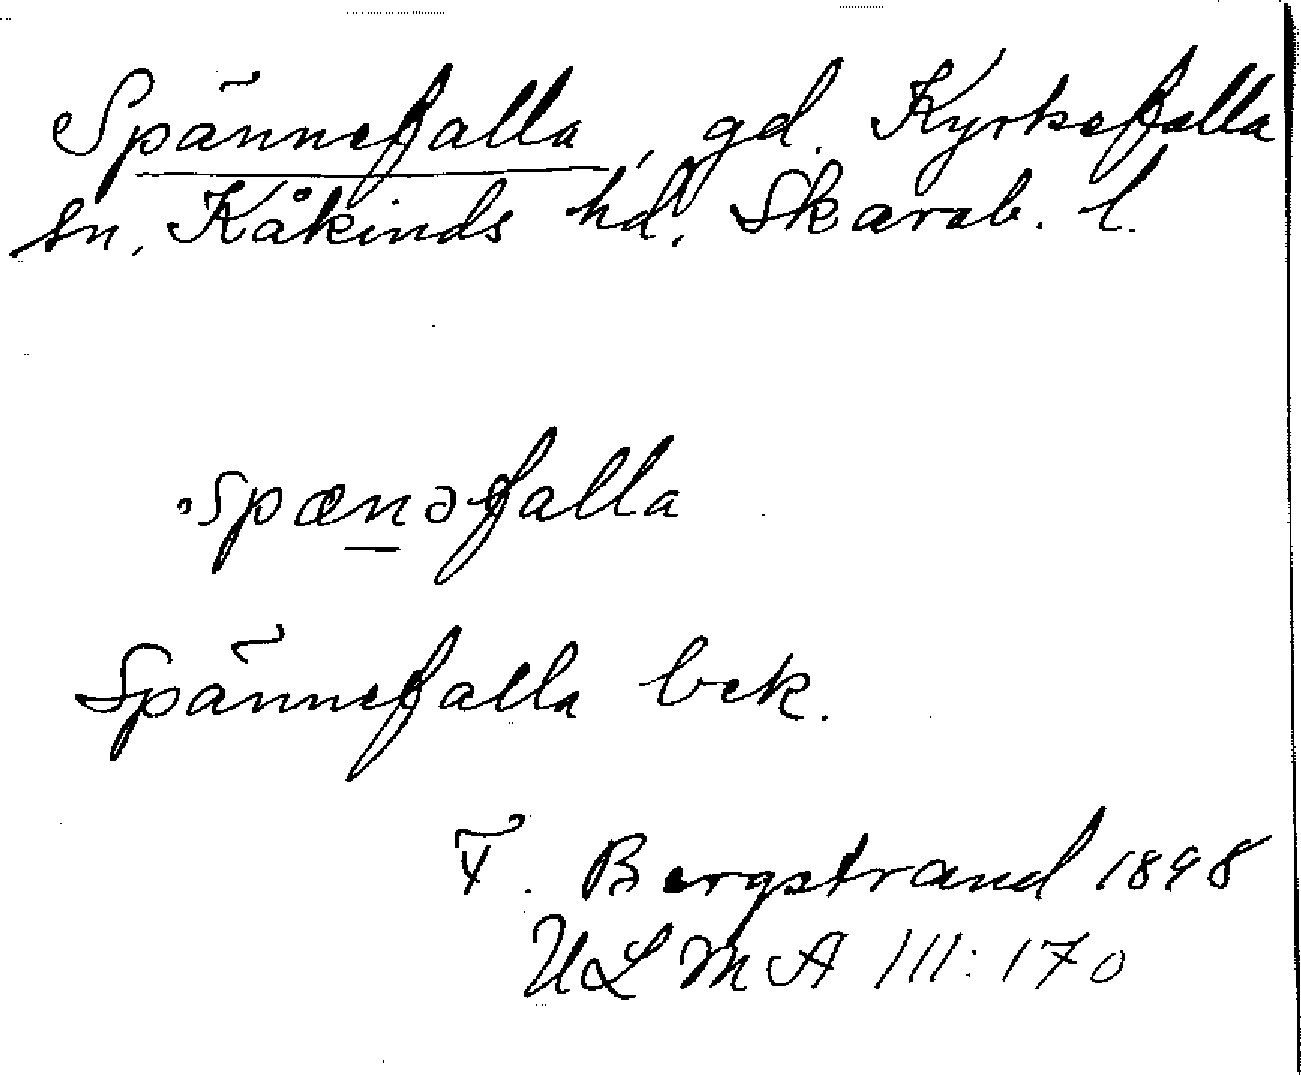 Spännefalla, gd. Kyrkefalla
sn, Kåkinds hd, Skarab. l.
spænəfalla
Spännefalla bek.
T. Bergstrand 1898
ULMA 111:170